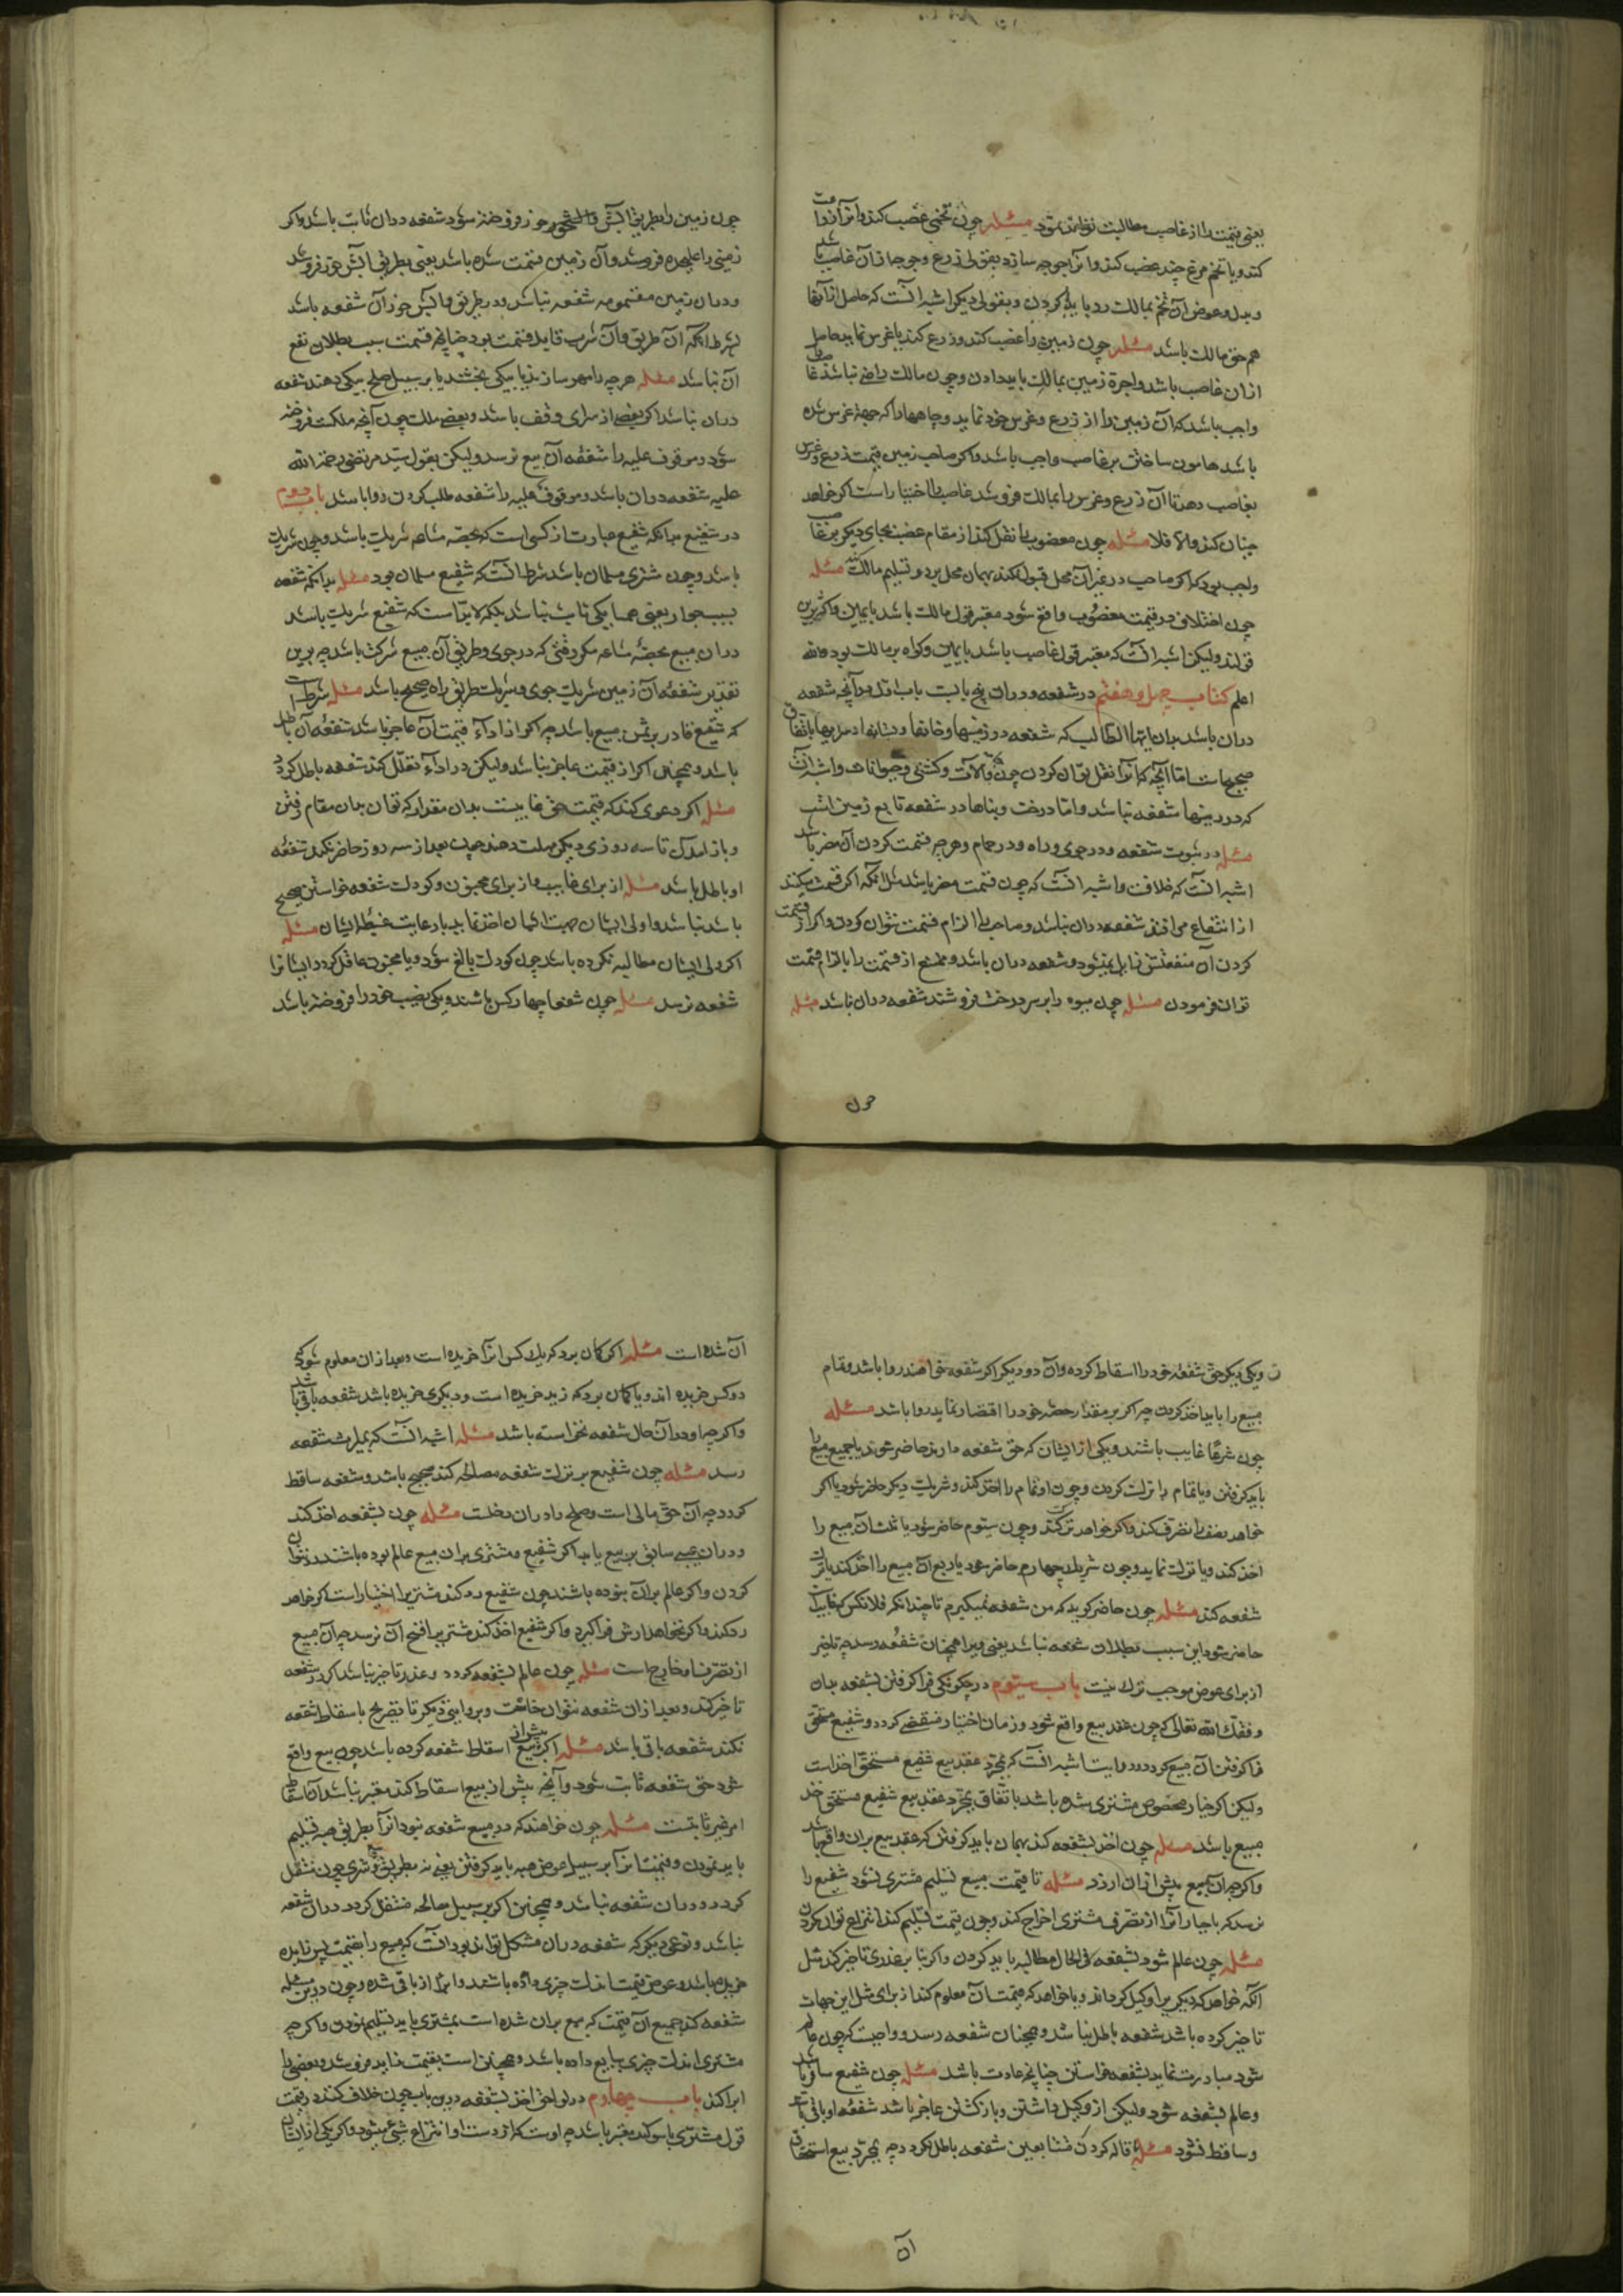 یعنی قیمت را از غاصب مطالبت تواند نمود مسئله چون تخمی غصب کند و آنرا زراعت
کند و یا تخم مرغ چند غصب کند و آنرا جوجه سازد بقولی زرع و جوجها از آن غاصب باشد
و بدل و عوض آن تخم بمالک رد باید کردن و بقولی دیگر اشبه آنست که حاصل از آنها
هم حق مالک باشد مسئله چون زمین را غصب کند و زرع کند یا غرس نماید حاصل
از ان غاصب باشد و اجرة زمین بمالک باید دادن و چون مالک راضی نباشد غاصب را
واجب باشد که آن زمین را از زرع و غرس خود نماید و چاهها را که جهة غرس شده
باشد هامون ساختن بر غاصب واجب باشد و اگر صاحب زمین قیمت زرع و غرس
بغاصب دهد تا آن زرع و غرس را بمالک فروشد غاصب را اختیار است اگر خواهد
چنان کند والا فلا مسئله چون مغصوب را نقل کند از مقام غصب بجای دیگر بر غاصب
واجب بود که اگر صاحب در غیر آن محل قبول نکند بهمان محل برد و تسلیم مالک کند مسئله
چون اختلاف در قیمت مغصوب واقع شود معتبر قول مالک باشد با یمین و اکثر برین
قولند ولیکن اشبه آنست که معتبر قول غاصب باشد با یمین و گواه بر مالک بود والله
اعلم کتاب چهل و هفتم در شفعه و دران پنج بابست باب اول در آنچه شفعه
دران باشد بدان ایها الطالب که شفعه در زمینها و خانها و بستانها در مبیعها باتفاق
صحیح است اما آنچه که آنرا نقل توان کردن چون آلات و کشتی و حیوانات و اشبه آنست
که درینها شفعه نباشد و اما درخت و بناها در شفعه تابع زمین است
مسئله در ثبوت شفعه و در جوی و راه و در حمام و هرچه قسمت کردن آن مضر باشد
اشبه آنست که خلافت و اشبه آنست که چون قسمت مضر باشد مثلا آنکه اگر قسمت میکند
از انتفاع می افتد شفعه دران نباشد و صاحب را الزام قسمت نتوان کردن و اگر از قسمت
کردن آن منفعتش زایل نمیشود شفعه دران باشد و ممتنع از قسمت را بالزام قسمت
توان فرمودن مسئله چون میوه را بر سر درخت فروشند شفعه دران نباشد مسئله
چون
چون زمین را بطریق آبش و شجر خود فروخته شود شفعه دران ثابت باشد و اگر
زمینی را علیحده فروشد و آن زمین قسمت شده باشد یعنی بطریق آبش خود فروشد
و دران زمین مقسومه شفعه نباشد و در طریق و آبش خود آن شفعه باشد
بشرط آنکه آن طریق و آن شرب قابل قسمت بود چنانچه قسمت سبب بطلان نفع
آن نباشد مسئله هرچه را مهر سازند یا بکسی بخشند یا بر سبیل صلح بیکی دهند شفعه
دران نباشد اگر بعضی از سرای وقف باشد و بعضی ملک چون آنچه ملکست فروخته
شود موقوف علیه را شفعه آن بیع نرسد ولیکن بقول سید مرتضی رحمة الله
علیه شفعه دران باشد و موقوف علیه را شفعه طلب کردن روا باشد باب دوم
در شفیع بدانکه شفیع عبارت از کسی است که بحصه مشاعه شریک باشد و چون شریک
باشد و چون مشتری مسلمان باشد شرط آنست که شفیع مسلمان بود مسئله بدانکه شفعه
بسبب جوار یعنی همسایگی ثابت نباشد بلکه لابد است که شفیع شریک باشد
دران مبیع بحصه مشاعه مگر وقتی که در جوی و طریق آن مبیع شرکت باشد چه برین
تقدیر شفعه آن زمین شریک جوی و شریک طریق راه صحیح باشد مسئله شرط است
که شفیع قادر بر ثمن مبیع باشد چه اگر از اداء قیمت آن عاجز باشد شفعه آن باطل
باشد و همچنین اگر از قیمت عاجز نباشد ولیکن در اداء تعلل کند شفعه باطل گردد
مسئله اگر دعوی کند که قیمتش غایبست بدان مقدار که توان بدان مقام رفتن
و باز آمدن تا سه روزی دیگر مهلت دهند چون بعد از سه روز حاضر نکند شفعه
او باطل باشد مسئله از برای غایب و از برای مجنون و کودک شفعه خواستن صحیح
باشد نباشد و اولی ایشان جهت ایشان اخذ نماید با رعایت غبطه ایشان مسئله
اگر ولی ایشان مطالبه نکرده باشد چون کودک بالغ شود و یا مجنون عاقل گردد ایشانرا
شفعه نرسد مسئله چون شفعا چهار کس باشند و یکی نصیب خود را فروخته باشد
و یکی دیگر حق شفعه خود را اسقاط کرده و آن دو دیگر اگر شفعه خواهند روا باشد و تمام
مبیع را باید اخذ کردن چه اگر بر مقدار حصه خود را اقتصار نماید روا باشد مسئله
چون شرکا غایب باشند و یکی از ایشان که حق شفعه دارند حاضر شوند یا جمیع مبیع را
باید گرفتن و یا تمام را ترک کردن و چون او تمام را اخذ کند و شریک دیگر حاضر شود یا اگر
خواهد نصف را تصرف کند و اگر خواهد ترک کند و چون سیوم حاضر شود یا ثلث آن مبیع را
اخذ کند و یا ترک نماید و چون شریک چهارم حاضر شود یا ربع آن مبیع را اخذ کند یا ترک
شفعه کند مسئله چون حاضر گوید که من شفعه نمیگیرم تا چندانکه فلانکس که غایبست
حاضر شود این سبب بطلان شفعه نباشد یعنی ویرا همچنان شفعه رسد چه تاخیر
از برای عوض موجب ترک نیست باب سیوم در چگونگی فرا گرفتن بشفعه بدان
وفقک الله تعالی که چون عقد بیع واقع شود و زمان اختیار منقضی گردد و شفیع مستحق
فرا گرفتن آن مبیع گردد و روایت اشبه آنست که بمجرد عقد بیع شفیع مستحق اخذ است
ولیکن اگر خیار مخصوص مشتری شده باشد باتفاق بمجرد عقد بیع شفیع مستحق اخذ
مبیع باشد مسئله چون اخذ بشفعه کند بهمان باید گرفتن که عقد بیع بران واقع باشد
و اگرچه آن مبیع بیش از ان ارزد مسئله تا قیمت مبیع تسلیم مشتری نشود شفیع را
نرسد که باجبار آنرا از تصرف مشتری اخراج کند و چون قیمت تسلیم کند انتزاع توان کردن
مسئله چون عالم شود بشفعه فی الحال مطالبه باید کردن و اگر بنا بر عذری تاخیر کند مثل
آنکه خواهد که دیگری را وکیل گرداند و یا خواهد که قیمت آن معلوم کند از برای مثل این جهات
تاخیر کرده باشد شفعه باطل نباشد و همچنان شفعه رسد و واجبست که چون عالم
شود مبادرت نماید بشفعه خواستن چنانچه عادت باشد مسئله چون شفیع مسافر باشد
و عالم بشفعه شود ولیکن از وکیل داشتن و باز گشتن عاجز باشد شفعه او باقی باشد
و ساقط نشود مسئله اقاله کردن متبایعین شفعه باطل نگردد چه بمجرد بیع استحقاق
آن
آن شده است مسئله اگر گمان برد که یک کس آنرا خریده است و بعد از ان معلوم شود که
دو کس خریده اند و یا گمان برد که زید خریده است و دیگری خریده باشد شفعه باقی باشد
و اگرچه او در آن حال شفعه نخواسته باشد مسئله اشبه آنست که بمیراث شفعه
رسد مسئله چون شفیع بر ترک شفعه مصالحه کند صحیح باشد و شفعه ساقط
گردد چه آن حق مالی است و صلح را دران دخلست مسئله چون بشفعه اخذ کند
و دران عیب سابق بر بیع یابد اگر شفیع و مشتری بران بیع عالم بوده باشند رد نتوان
کردن و اگر عالم بران نبوده باشند چون شفیع رد کند مشتریرا اختیار است اگر خواهد
رد کند و اگر نخواهد ارش فرا گیرد و اگر شفیع اخذ کند مشتریرا فسخ آن نرسد چه آن مبیع
از تصرف او خارج است مسئله چون عالم بشفعه گردد و عذر تاخیر نباشد اگر در شفعه
تاخیر کند و بعد از ان شفعه نتوان خواست و بروایتی دیگر تا تصریح باسقاط شفعه
نکند شفعه باقی باشد مسئله اگر پیش از بیع اسقاط شفعه کرده باشد چون بیع واقع
شود حق شفعه ثابت شود و آنچه پیش از بیع اسقاط کند معتبر نباشد آن اسقاط
امر غیر ثابتست مسئله چون خواهند که در مبیع شفعه نبود آنرا بطریق هبه تسلیم
باید نمودن و قیمت آنرا بر سبیل عوض هبه باید گرفتن یعنی نه بطریق بیع و شری چون منتقل
گردد دران شفعه نباشد و همچنین اگر بر سبیل مصالحه منتقل گردد دران شفعه
نباشد و نوعی دیگر که شفعه دران مشکل تواند بود آنست که مبیع را بقیمت بس زیاده
خریده باشد و عوض قیمت اندک چیزی داده باشد و ابرا از باقی شده و چون درین مسئله
شفعه کند جمیع آن قیمت که بیع بران شده است بمشتری باید تسلیم نمودن و اگرچه
مشتری اندک چیزی ببایع داده باشد و همچنین است بقیمت زیاده فروشد و بعضی را
ابرا کند باب چهارم در لواحق اخذ بشفعه درین باب چون خلاف کنند در قیمت
قول مشتری با سوگند معتبر باشد چه اوست که از دست او انتزاع شیء میشود و اگر یکی از ایشان